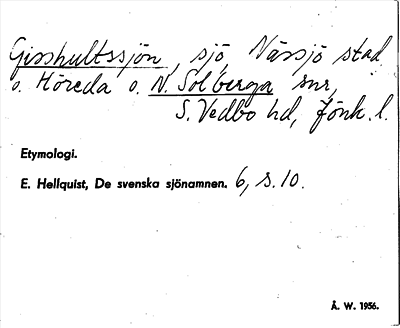 Gisshultssjön, sjö, Nässjö stad
o. Höreda o. N. Solberga snr,
S. Vedbo hd, Jönk. l.
Etymologi.
E. Hellquist, De svenska sjönamnen. 6, s. 10.
Å. W. 1956.